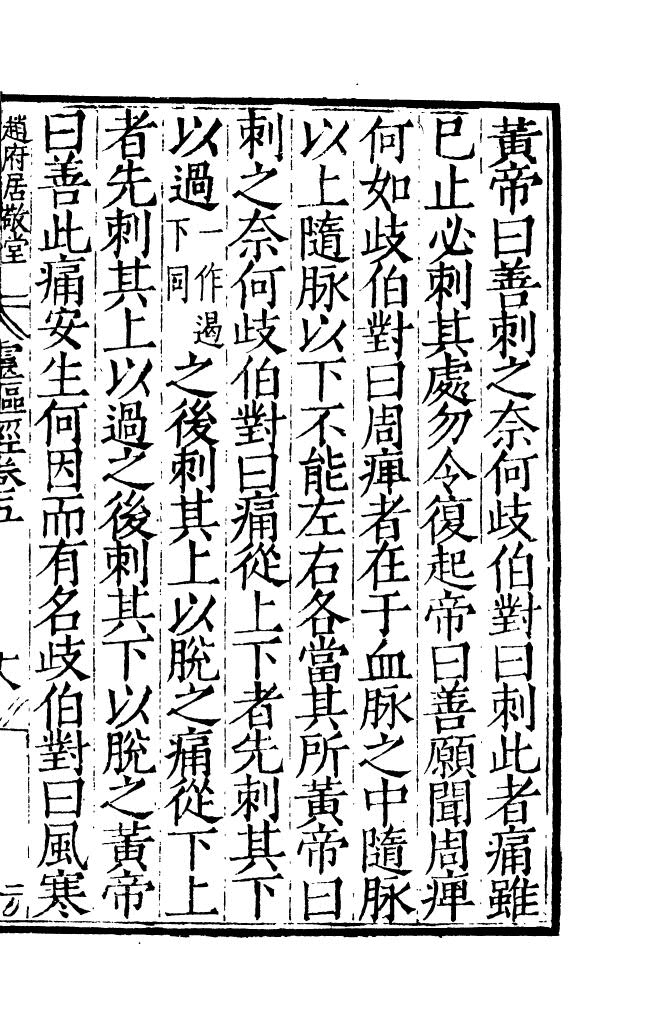 黃帝曰善刺之奈何歧伯對曰刺此者痛雖
已止必刺其處勿令復起帝曰善願聞周痺
何如歧伯對曰周痺者在于血脉之中隨脉
以上隨脉以下不能左右各當其所黃帝曰
刺之奈何歧伯對曰痛從上下者先刺其下
以過一作遏下同之後刺其上以脫之痛從下上
者先刺其上以過之後刺其下以脫之黃帝
曰善此痛安生何因而有名歧伯對曰風寒
趙府居敬堂 靈樞經卷五